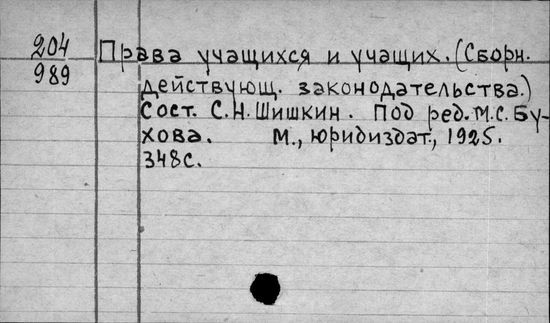 204
989
Права учащихся и учащих. (Сборн.
действующ. законодательства.)
Сост. С.Н. Шишкин. Под ред. М.С. Бу-
хова. М., юридиздат., 1925.
348с.